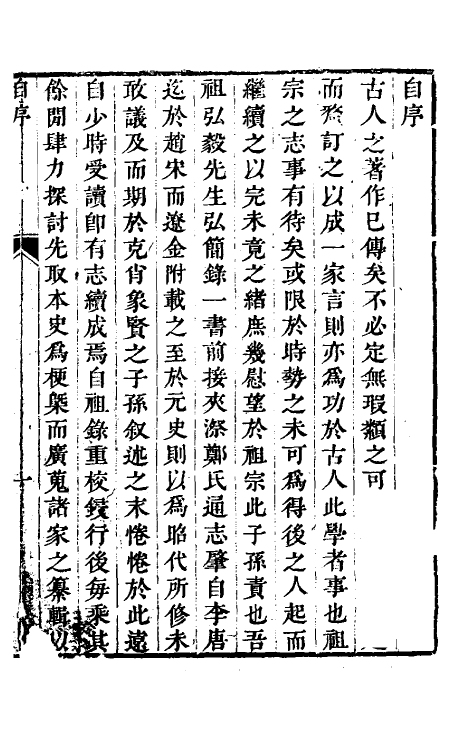 自序
古人之著作已傳矣不必定無瑕纇之可
而釐訂之以成一家言則亦為功於古人此學者事也祖
宗之志事有待矣或限於時勢之未可為得後之人起而
繼續之以完未竟之緒庶幾慰望於祖宗此子孫責也吾
祖弘毅先生弘簡錄一書前接夾漈鄭氏通志肇自李唐
迄於趙宋而遼金附載之至於元史則以為昭代所修未
敢議及而期於克肖象賢之子孫叙述之末惓惓於此遠
自少時受讀卽有志續成焉自祖錄重校鋟行後每乘其
餘閒肆力探討先取本史為梗槩而廣蒐諸家之纂輯以
自序
一